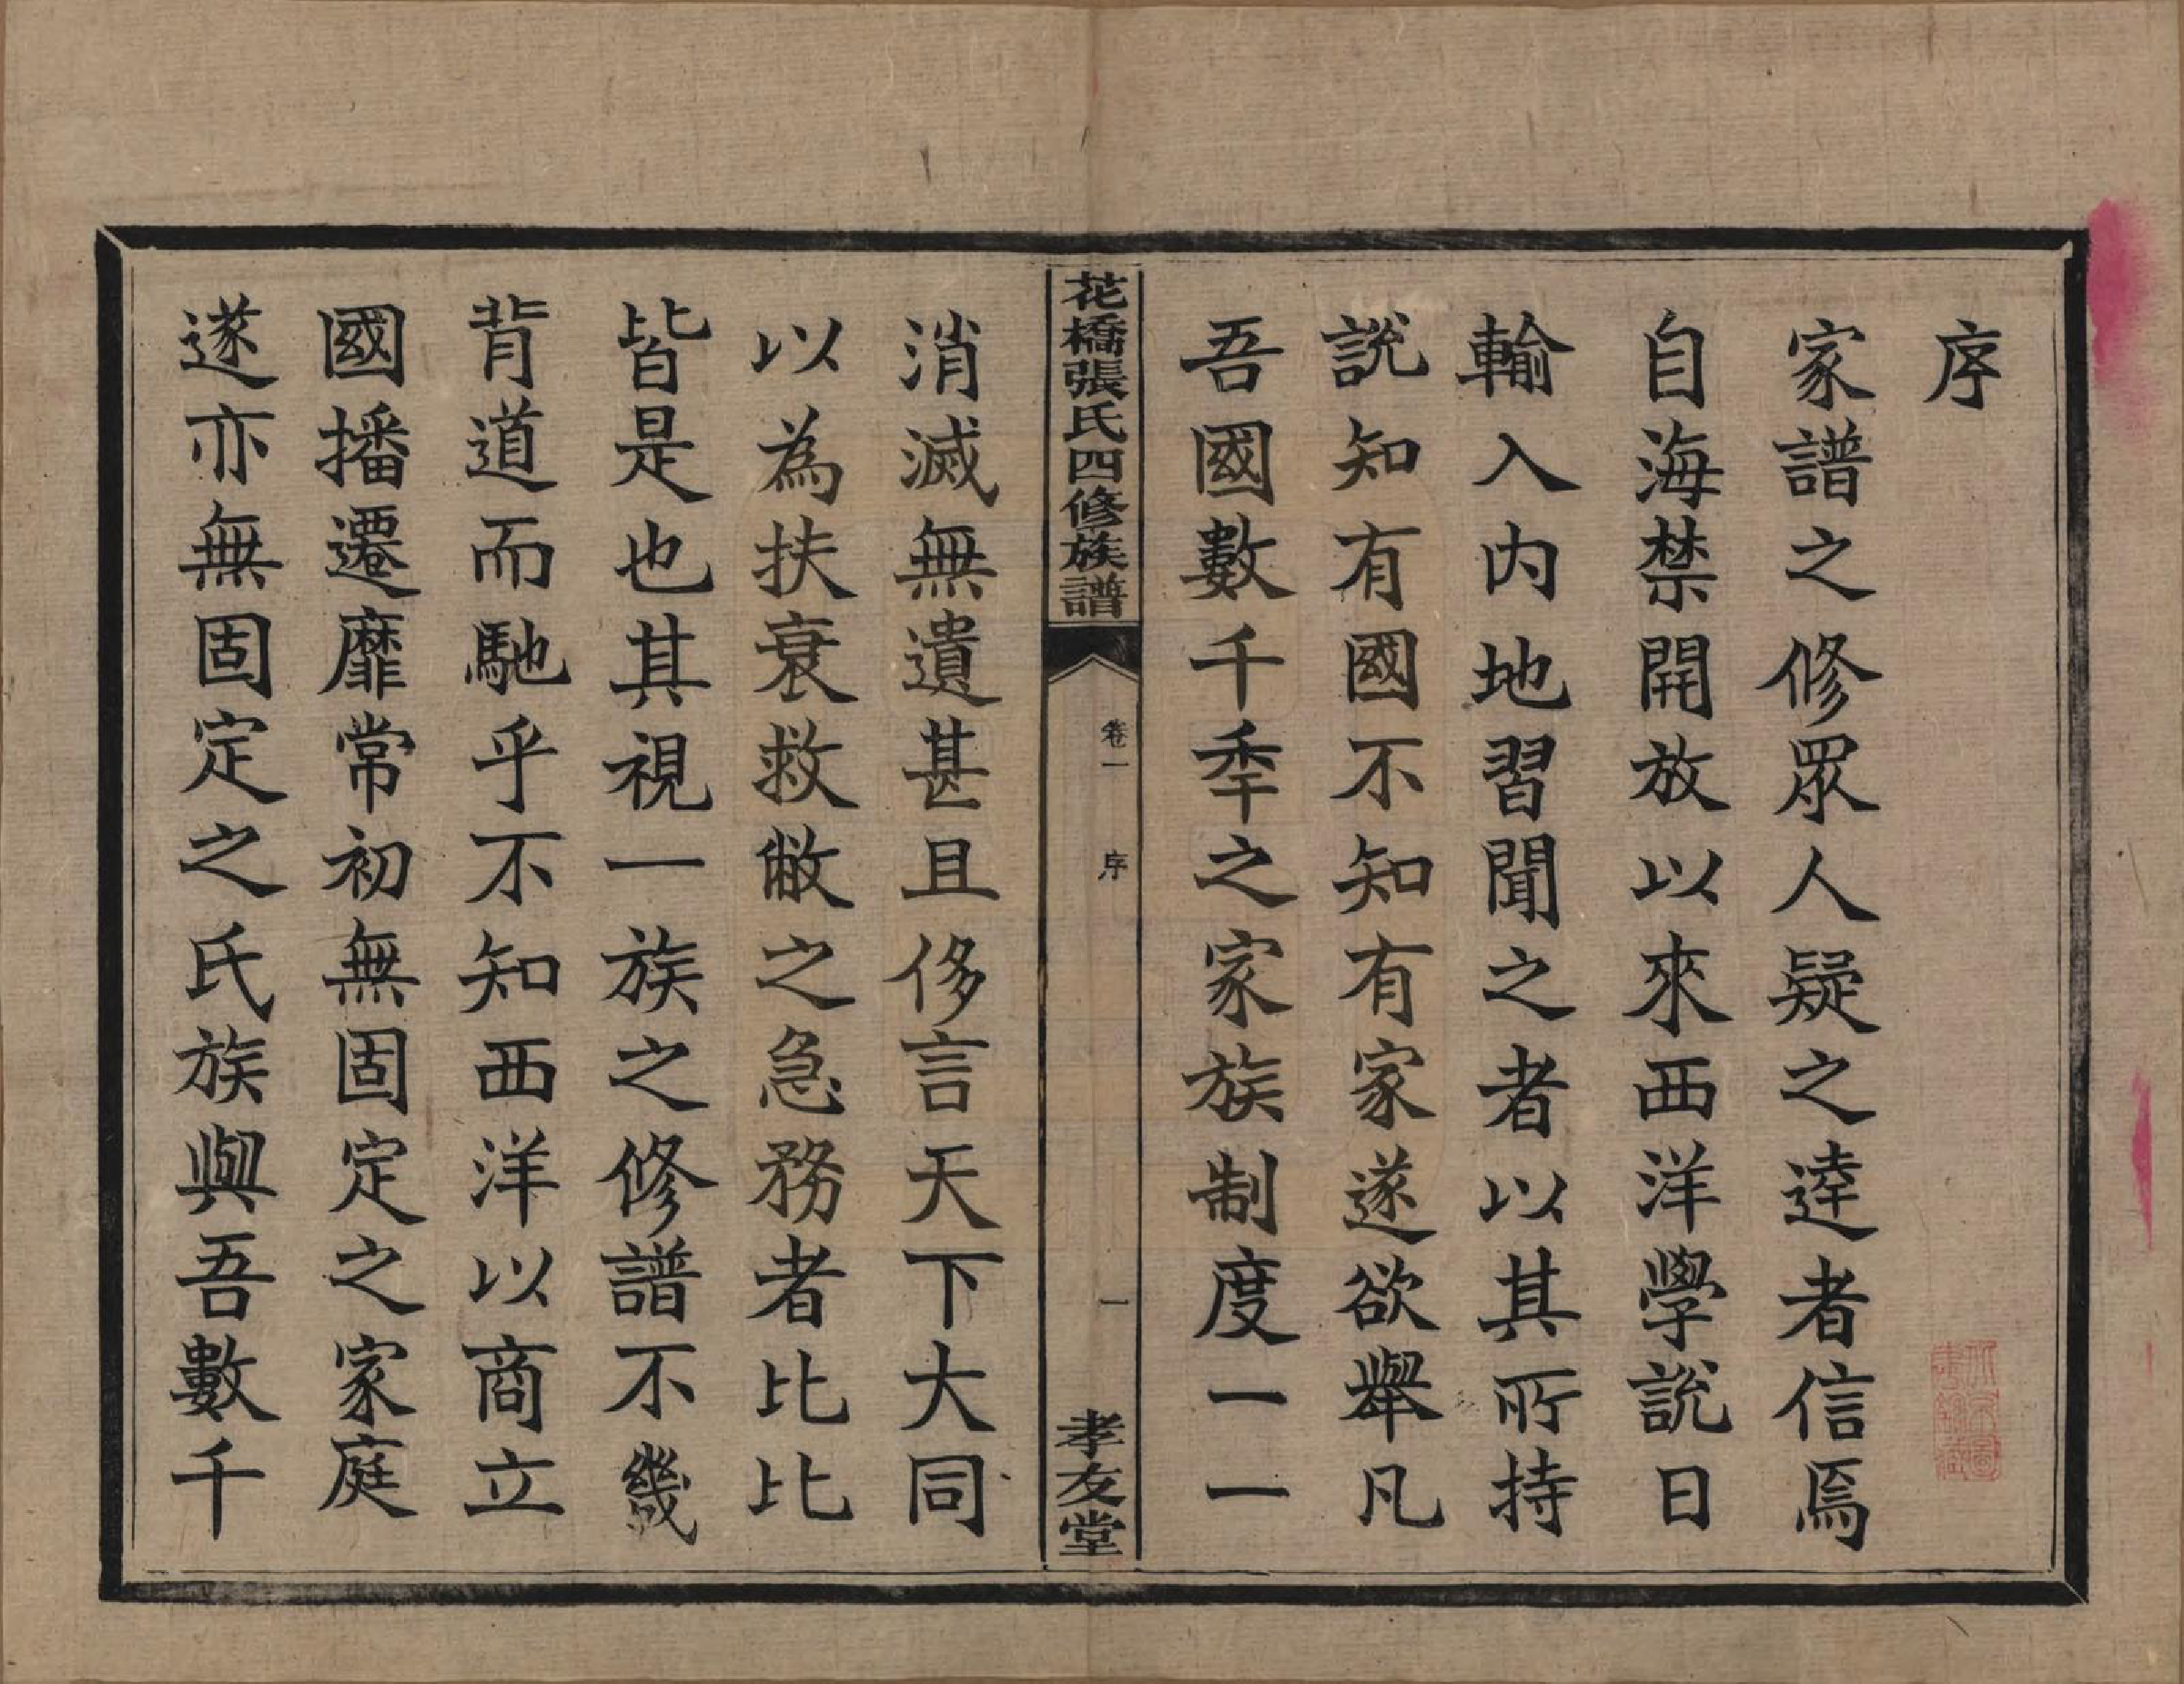 序
家譜之修眾人疑之達者信焉
自海禁開放以來西洋學說日
輸入内地習聞之者以其所持
說知有國不知有家遂欲舉凡
吾國數千秊之家族制度一一
花橋張氏四修族譜
卷一
序
一
孝友堂
消滅無遺甚且侈言天下大同
以為扶衰救敝之急務者比比
皆是也其視一族之修譜不幾
背道而馳乎不知西洋以商立
國播遷靡常初無固定之家庭
遂亦無固定之氏族與吾數千